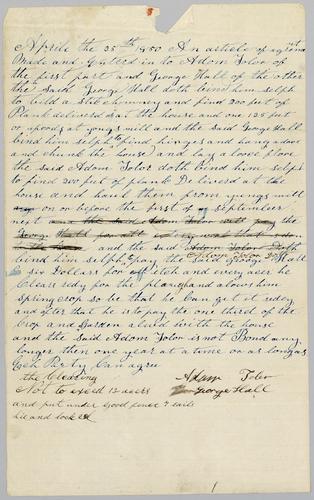 Aprile the 25th 1850 An article of agrement
Made and Entered in to Adom Toler of
the first part and George Hall of the other
the Said George Hall doth bind him selph
to bild a Stic chimney and find 200 feet of
Plank delivered at the house and one 125 feet
or upords at yongs mill and the Said George Hall
bind him selph to find hinges and hang a dore
and chunk the house and lay a loose flore
the said Adom Toler doth bind him selph
to find 200 feet of plank Deliverd at the
house and haul them from yungs mill
on or before the first of September
next and the Said Adom Toler will pay the
George Hall for all
in the house and the said Adom Toler Doth
Adom Toler
bind him selph to pay the said George Hall
six Dollars for each and every acer he
Clears redy for the plough and alows him
Spring crop so be that he Can get it redy
and after that he is to pay the one third of the
Crop and Garden alud with the house
and the Said Adom Toler is not Bond any
longer then one year at a time or as long as
Each Party Can agree
the Clearing
Not to exced 12 acers
and put under Good fence 7 rails
hie and locked
Adam Toler
George Hall